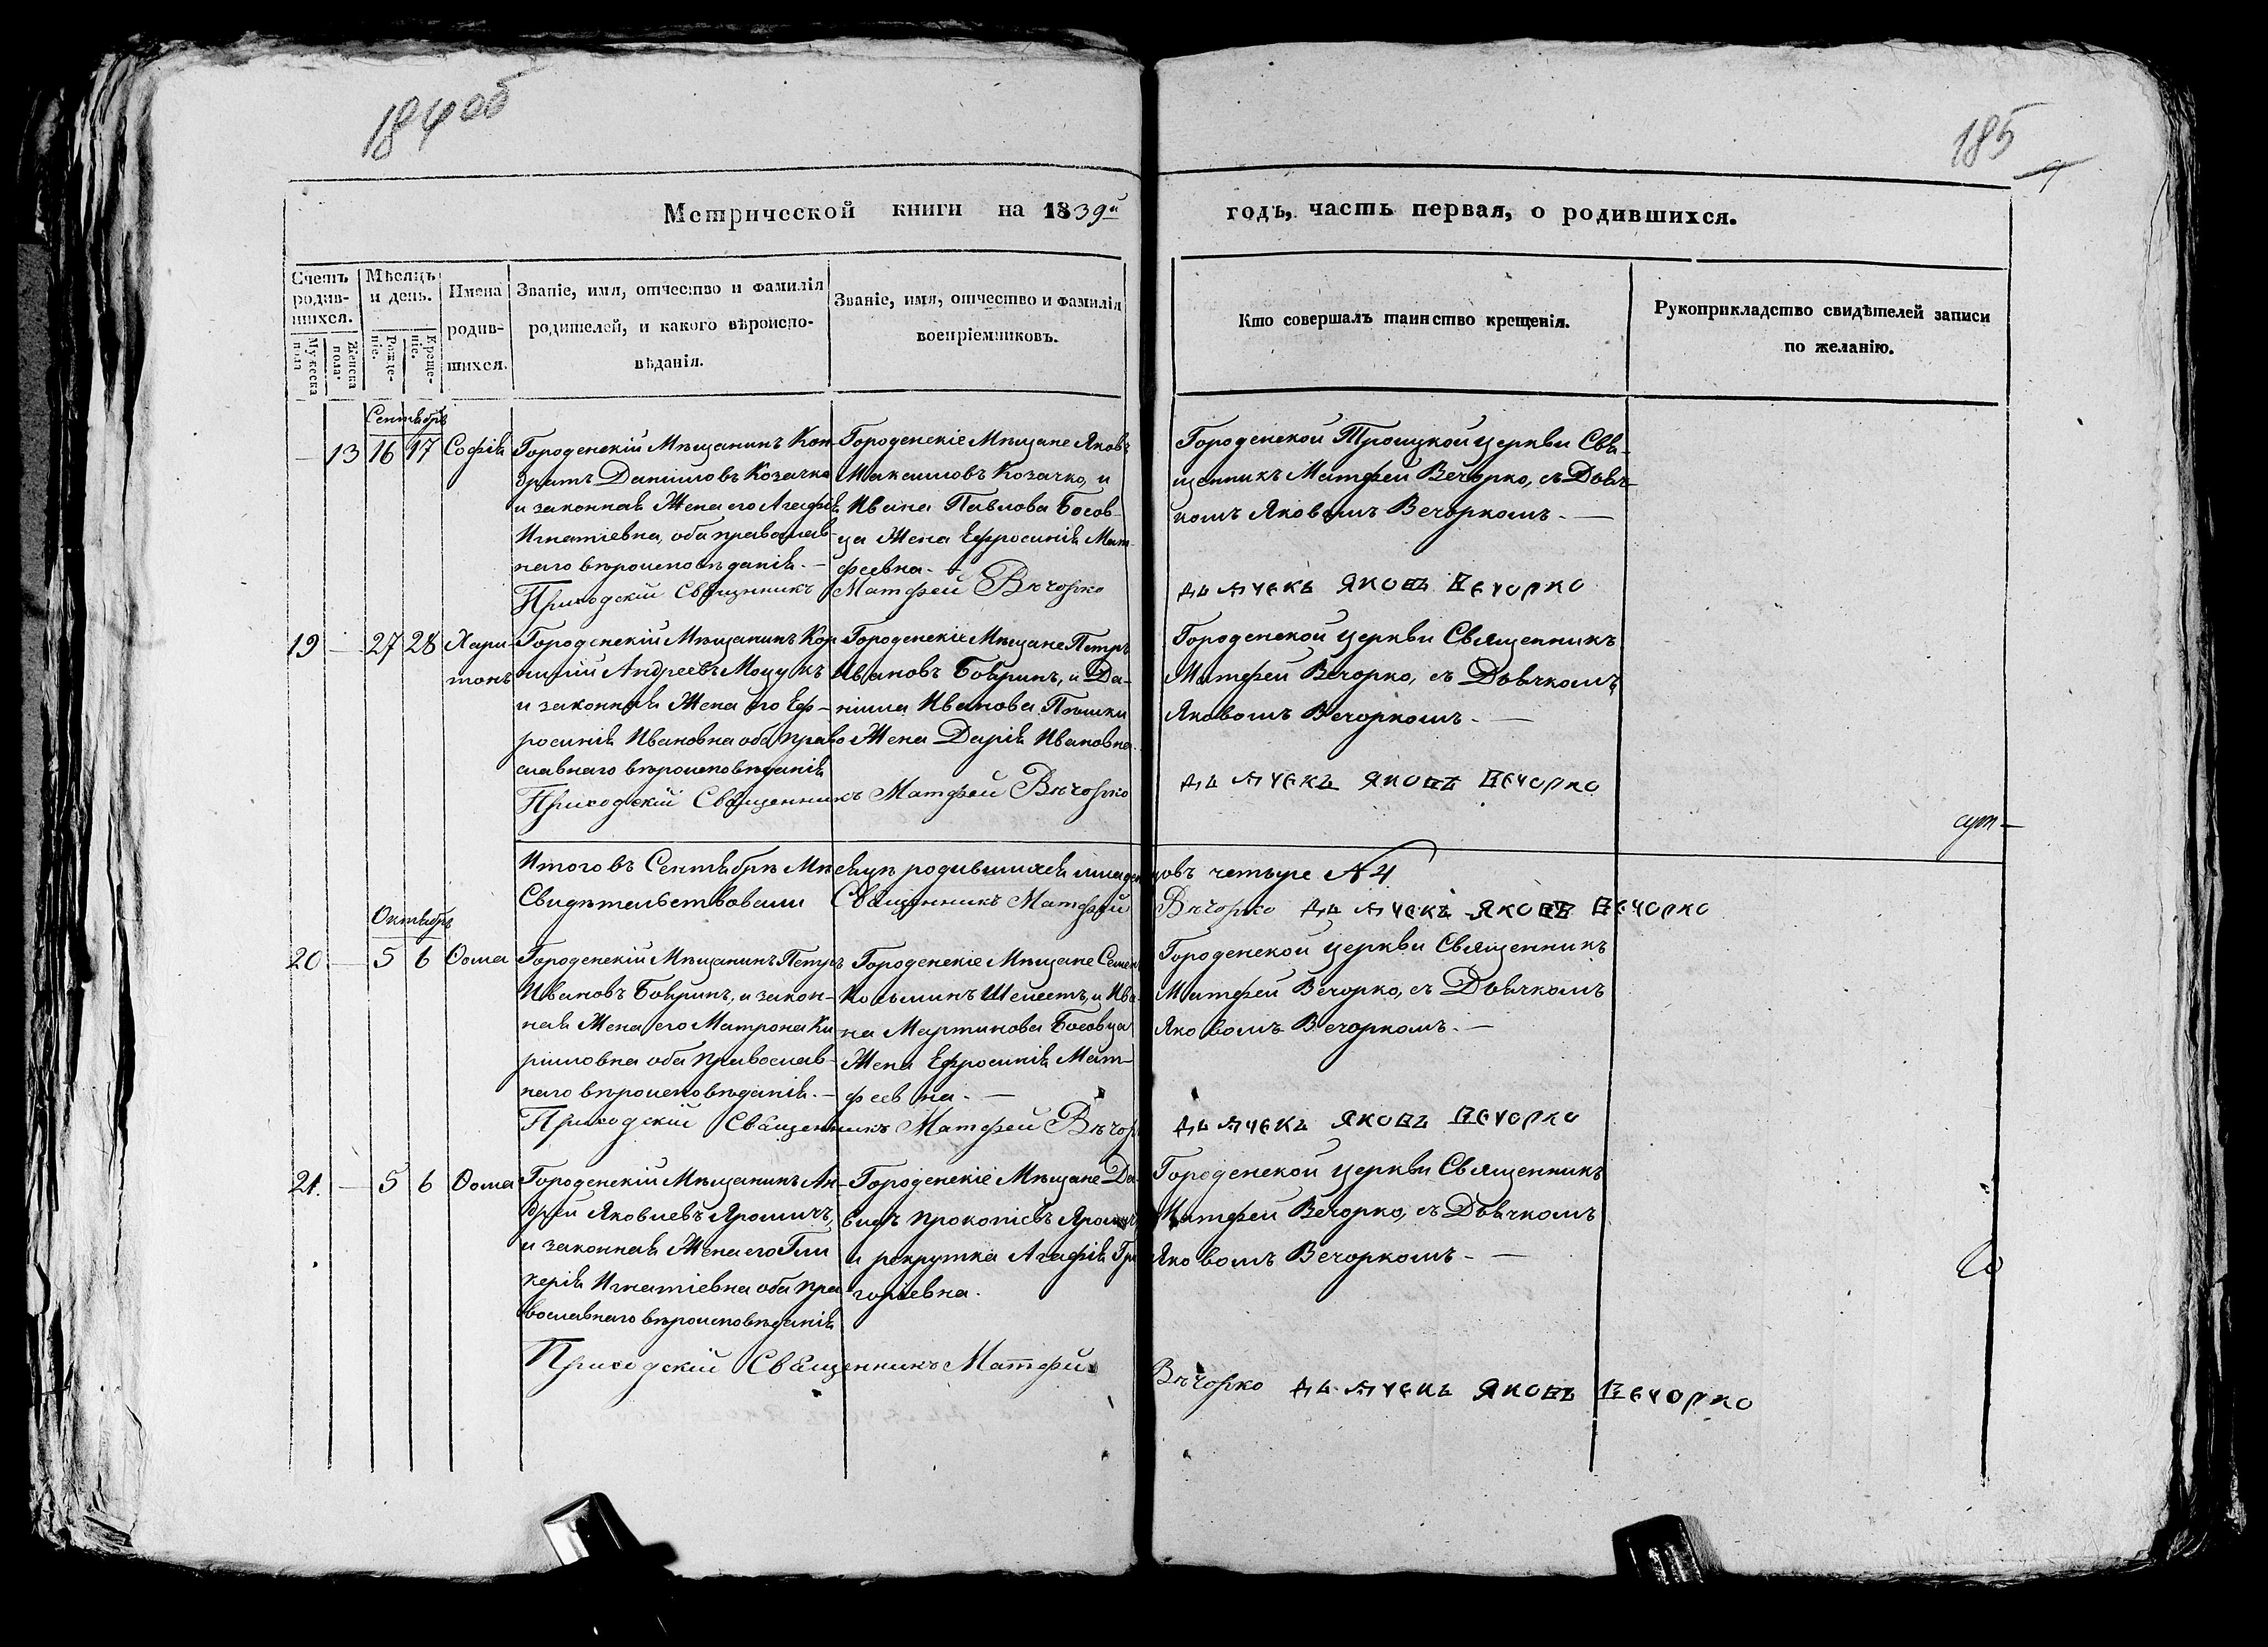 184 об
185
9
Метрической книги на 1839й
годъ, часть первая, о родившихся.
Счетъ родив-шихся.
Мужеска пола
Женска пола.
Мѣсяцъ и день.
Рожде-ніе.
Креще-ніе.
Имена родив-шихся.
Званіе, имя, отчество и фамилія
родителей, и какого вѣроиспо-
вѣданія.
Званіе, имя, отчество и фамилія
воспріемниковъ.
Кто совершалъ таинство крещенія.
Рукоприкладство свидѣтелей записи
по желанію.
Сентябрь
— 13 16 17 Софія
Городенскій Мѣщанинъ Кон-
дратъ Даниловъ Козачко
и законная Жена его Агафія
Игнатіевна, оба православ-
наго вѣроисповѣданія. —
Городенскіе Мѣщане Яковъ
Максимовъ Козачко, и
Ивана Павлова Босов-
ца Жена Ефросинія Мат-
феевна. —
Городенской Троицкой церкви Свя-
щенникъ Матфей Вечорко, съ Дьяч-
комъ Яковомъ Вечоркомъ. —
Приходскій Священникъ Матфей Вѣчорко
дьячекъ Яковъ Вечорко
19 — 27 28 Хари-
тонъ
Городенскій Мѣщанинъ Кор-
нилій Андреевъ Моцукъ
и законная Жена его Еф-
росинія Ивановна оба право
славнаго вѣроисповѣданія
Городенскіе Мѣщане Петръ
Ивановъ Бояринъ, и Да-
ніила Иванова
Жена Дарія Ивановна.
Городенской церкви Священникъ
Матфей Вечорко, съ Дьячкомъ
Яковомъ Вечоркомъ. —
Приходскій Священникъ Матфей Вѣчорко
дьячекъ Яковъ Вечорко
Итого въ Сентябрѣ Мѣсяцѣ родившихся младенцовъ четыре №4
Свидѣтельствовали Священникъ Матфей Вѣчорко дьячекъ Яковъ Вечорко
Октябрь
20 — 5 6 Ѳома
Городенскій Мѣщанинъ Петръ
Ивановъ Бояринъ, и закон-
ная Жена его Матрона Ки-
риловна оба православ-
наго вѣроисповѣданія. —
Городенскіе Мѣщане Семенъ
Козьминъ Шелестъ, и Ива-
на Мартинова Босовца
Жена Ефросинія Мат-
феевна. —
Городенской церкви Священникъ
Матфей Вечорко, съ Дьячкомъ
Яковомъ Вечоркомъ. —
Приходскій Священникъ Матфей Вѣчор
дьячекъ Яковъ Вечорко
21. — 5 6 Ѳома
Городенскій Мѣщанинъ Ан-
дрей Яковлевъ Яромичъ,
и законная Жена его Гли
керія Игнатіевна оба пра
вославнаго вѣроисповѣданія
Городенскіе Мѣщане Да-
видъ Прокопіевъ Яромичъ
и рекрутка Агафія Гри
горіевна.
Городенской церкви Священникъ
Матфей Вечорко, съ Дьячкомъ
Яковомъ Вечоркомъ. —
Приходскій Священникъ Матфей Вѣчорко дьячекъ Яковъ Вечорко